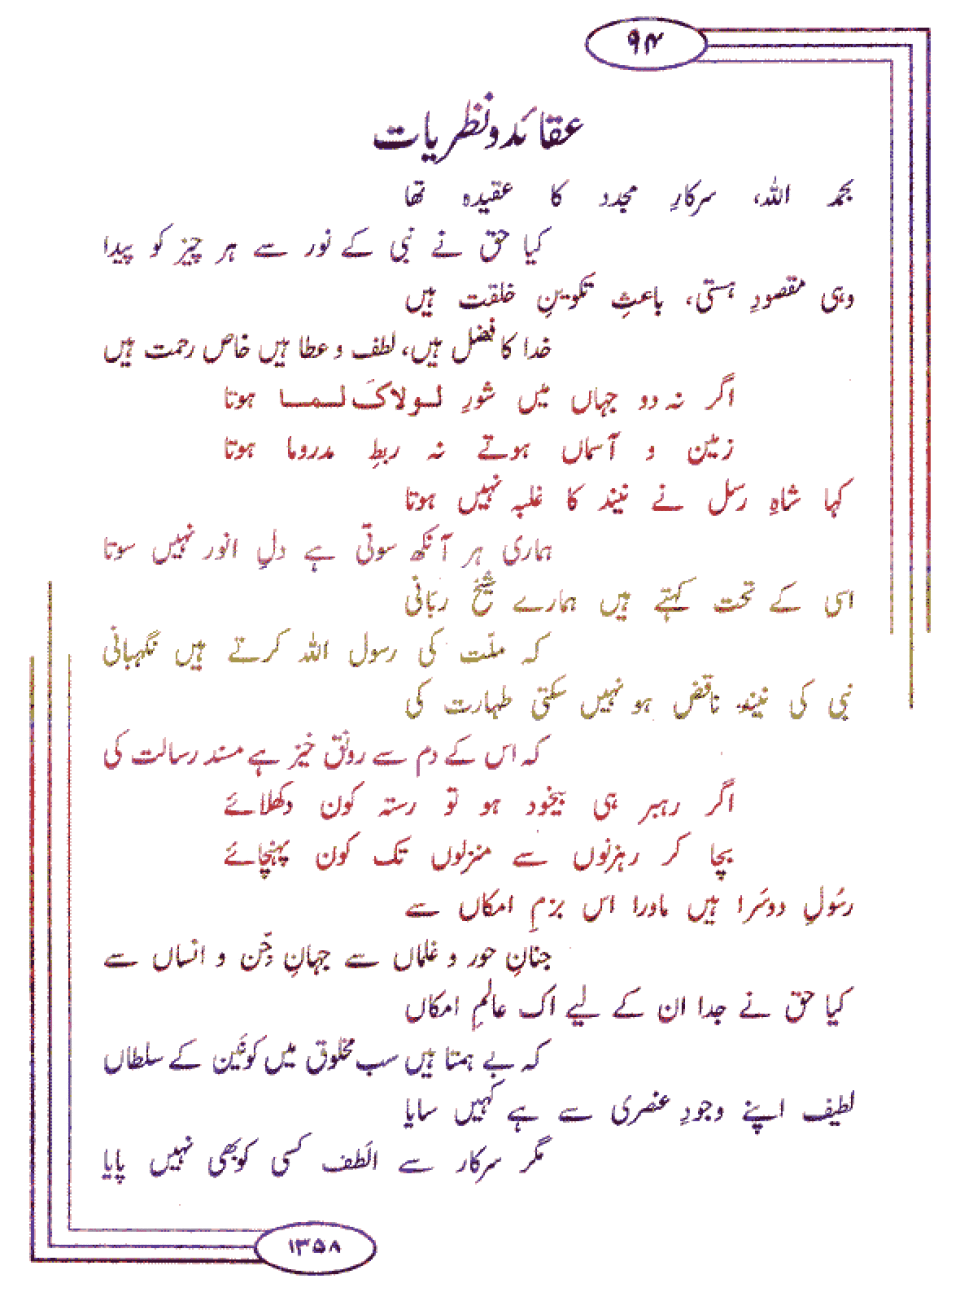 ۹۴
عقائد و نظریات
بحمد اللہ، سرکارِ مجدد کا عقیدہ تھا
کیا حق نے نبی کے نور سے ہر چیز کو پیدا
وہی مقصودِ ہستی، باعثِ تکوینِ خلقت ہیں
خدا کا فضل ہیں، لطف و عطا ہیں خاص رحمت ہیں
اگر نہ دو جہاں میں شورِ لولاکَ لما ہوتا
زمین و آسماں ہوتے نہ ربطِ مدروما ہوتا
کہا شاہِ رسل نے نیند کا غلبہ نہیں ہوتا
ہماری ہر آنکھ سوتی ہے دلِ انور نہیں سوتا
اسی کے تحت کہتے ہیں ہمارے شیخِ ربّانی
کہ ملّت کی رسول اللہ کرتے ہیں نگہبانی
نبی کی نیند ناقض ہو نہیں سکتی طہارت کی
کہ اس کے دم سے رونق خیز ہے مسند رسالت کی
اگر رہبر ہی بیخود ہو تو رستہ کون دکھلائے
بچا کر رہزنوں سے منزلوں تک کون پہنچائے
رسُولِ دوسَرا ہیں ماورا اس بزمِ امکاں سے
جنانِ حور و غلماں سے جہانِ جِن و انساں سے
کیا حق نے جدا ان کے لیے اک عالمِ امکاں
کہ بے ہمتا ہیں سب مخلوق میں کونَین کے سلطاں
لطیف اپنے وجودِ عنصری سے ہے کہیں سایا
مگر سرکار سے الطف کسی کو بھی نہیں پایا
۱۳۵۸